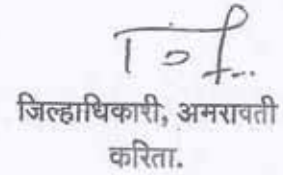 जिल्हाधिकारी, अमरावती
करिता.